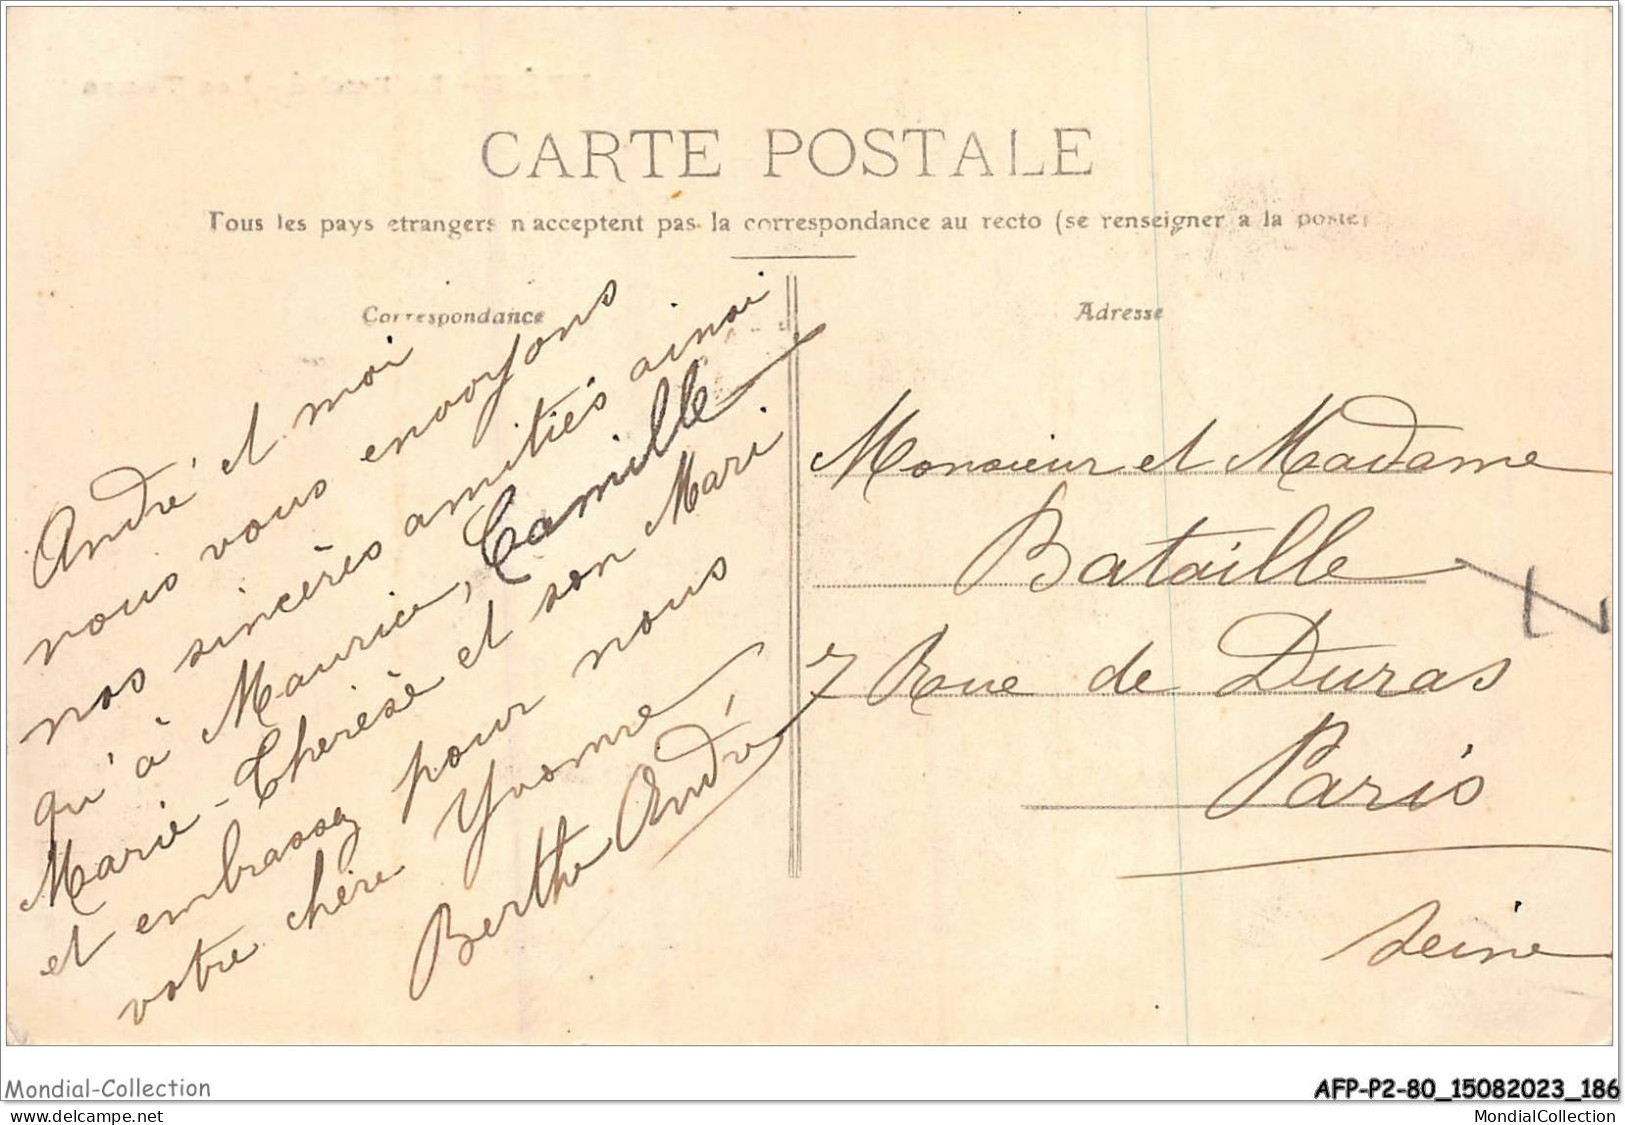 CARTE POSTALE
Tous les pays etrangers n acceptent pas la correspondance au recto (se renseigner a la poste)
Correspondance
Adresse
André et moi
nous vous envoyons
nos sincères amitiés ainsi
qu'à Maurice, Camille
Marie-Therèse et son Mari.
et embrassez pour nous
votre chère Yvonne
Berthe André
Monsieur et Madame
Bataille
7 Rue de Duras
Paris
Seine
Mondial-Collection
AFP-P2-80_15082023_186
www.delcampe.net
MondialCollection